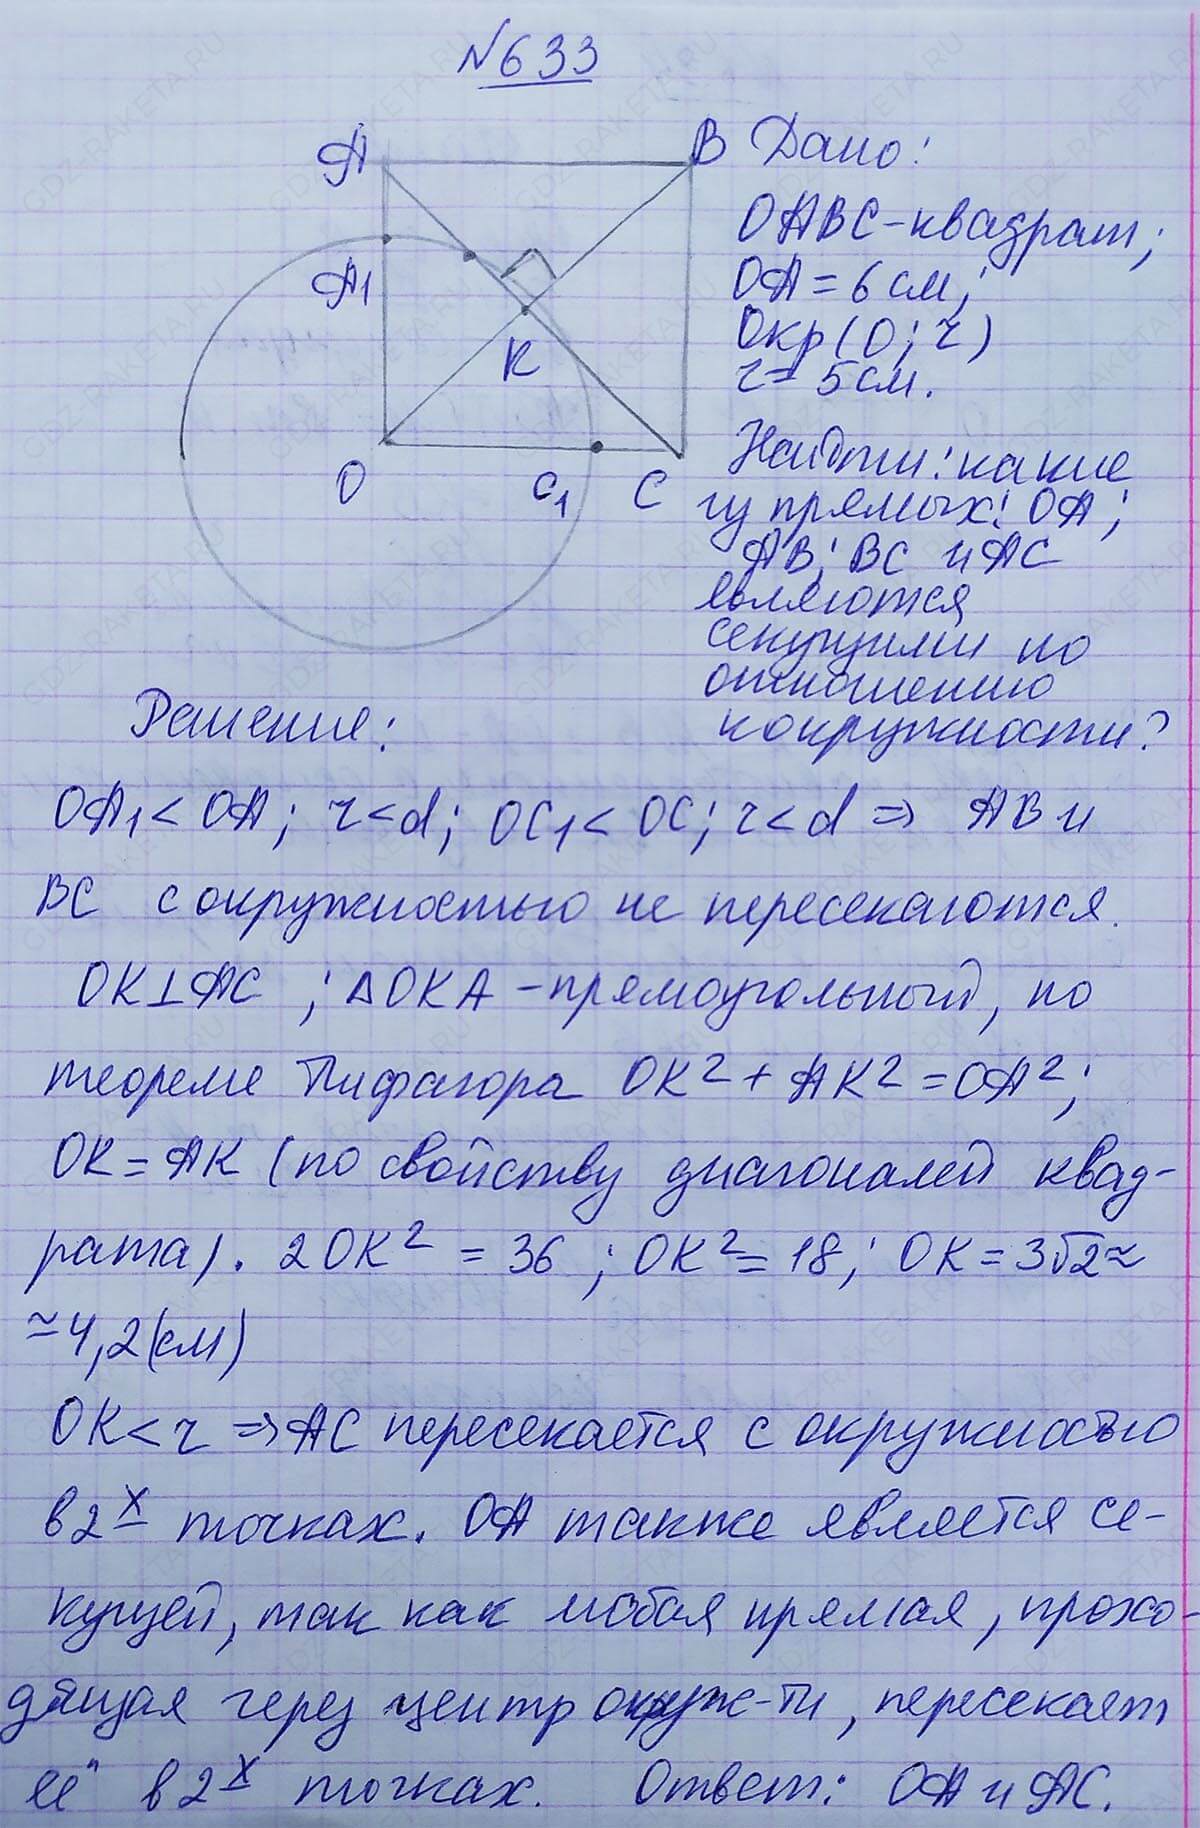 №633
А
В
Дано:
ОАВС-квадрат;
ОА=6см;
Окр(О; r)
r=5см.
А1
К
О
С1
С
Найти: какие
из прямых: ОА;
АВ; ВС и АС
являются
секущими по
отношению
к окружности?
Решение:
ОА1<ОА; r<d; ОС1<ОС; r<d ⇒ АВ и
ВС с окружностью не пересекаются.
ОК⊥АС ; ∆ОКА-прямоугольный, по
теореме Пифагора ОК²+АК²=ОА²;
ОК=АК (по свойству диагоналей квад-
рата). 2ОК²=36 ; ОК²=18; ОК=3√2≈
≈4,2(см)
ОК<r ⇒ АС пересекается с окружностью
в 2х точках. ОА также является се-
кущей, так как любая прямая, прохо-
дящая через центр окруж-ти, пересекает
её в 2х точках. Ответ: ОА и АС.